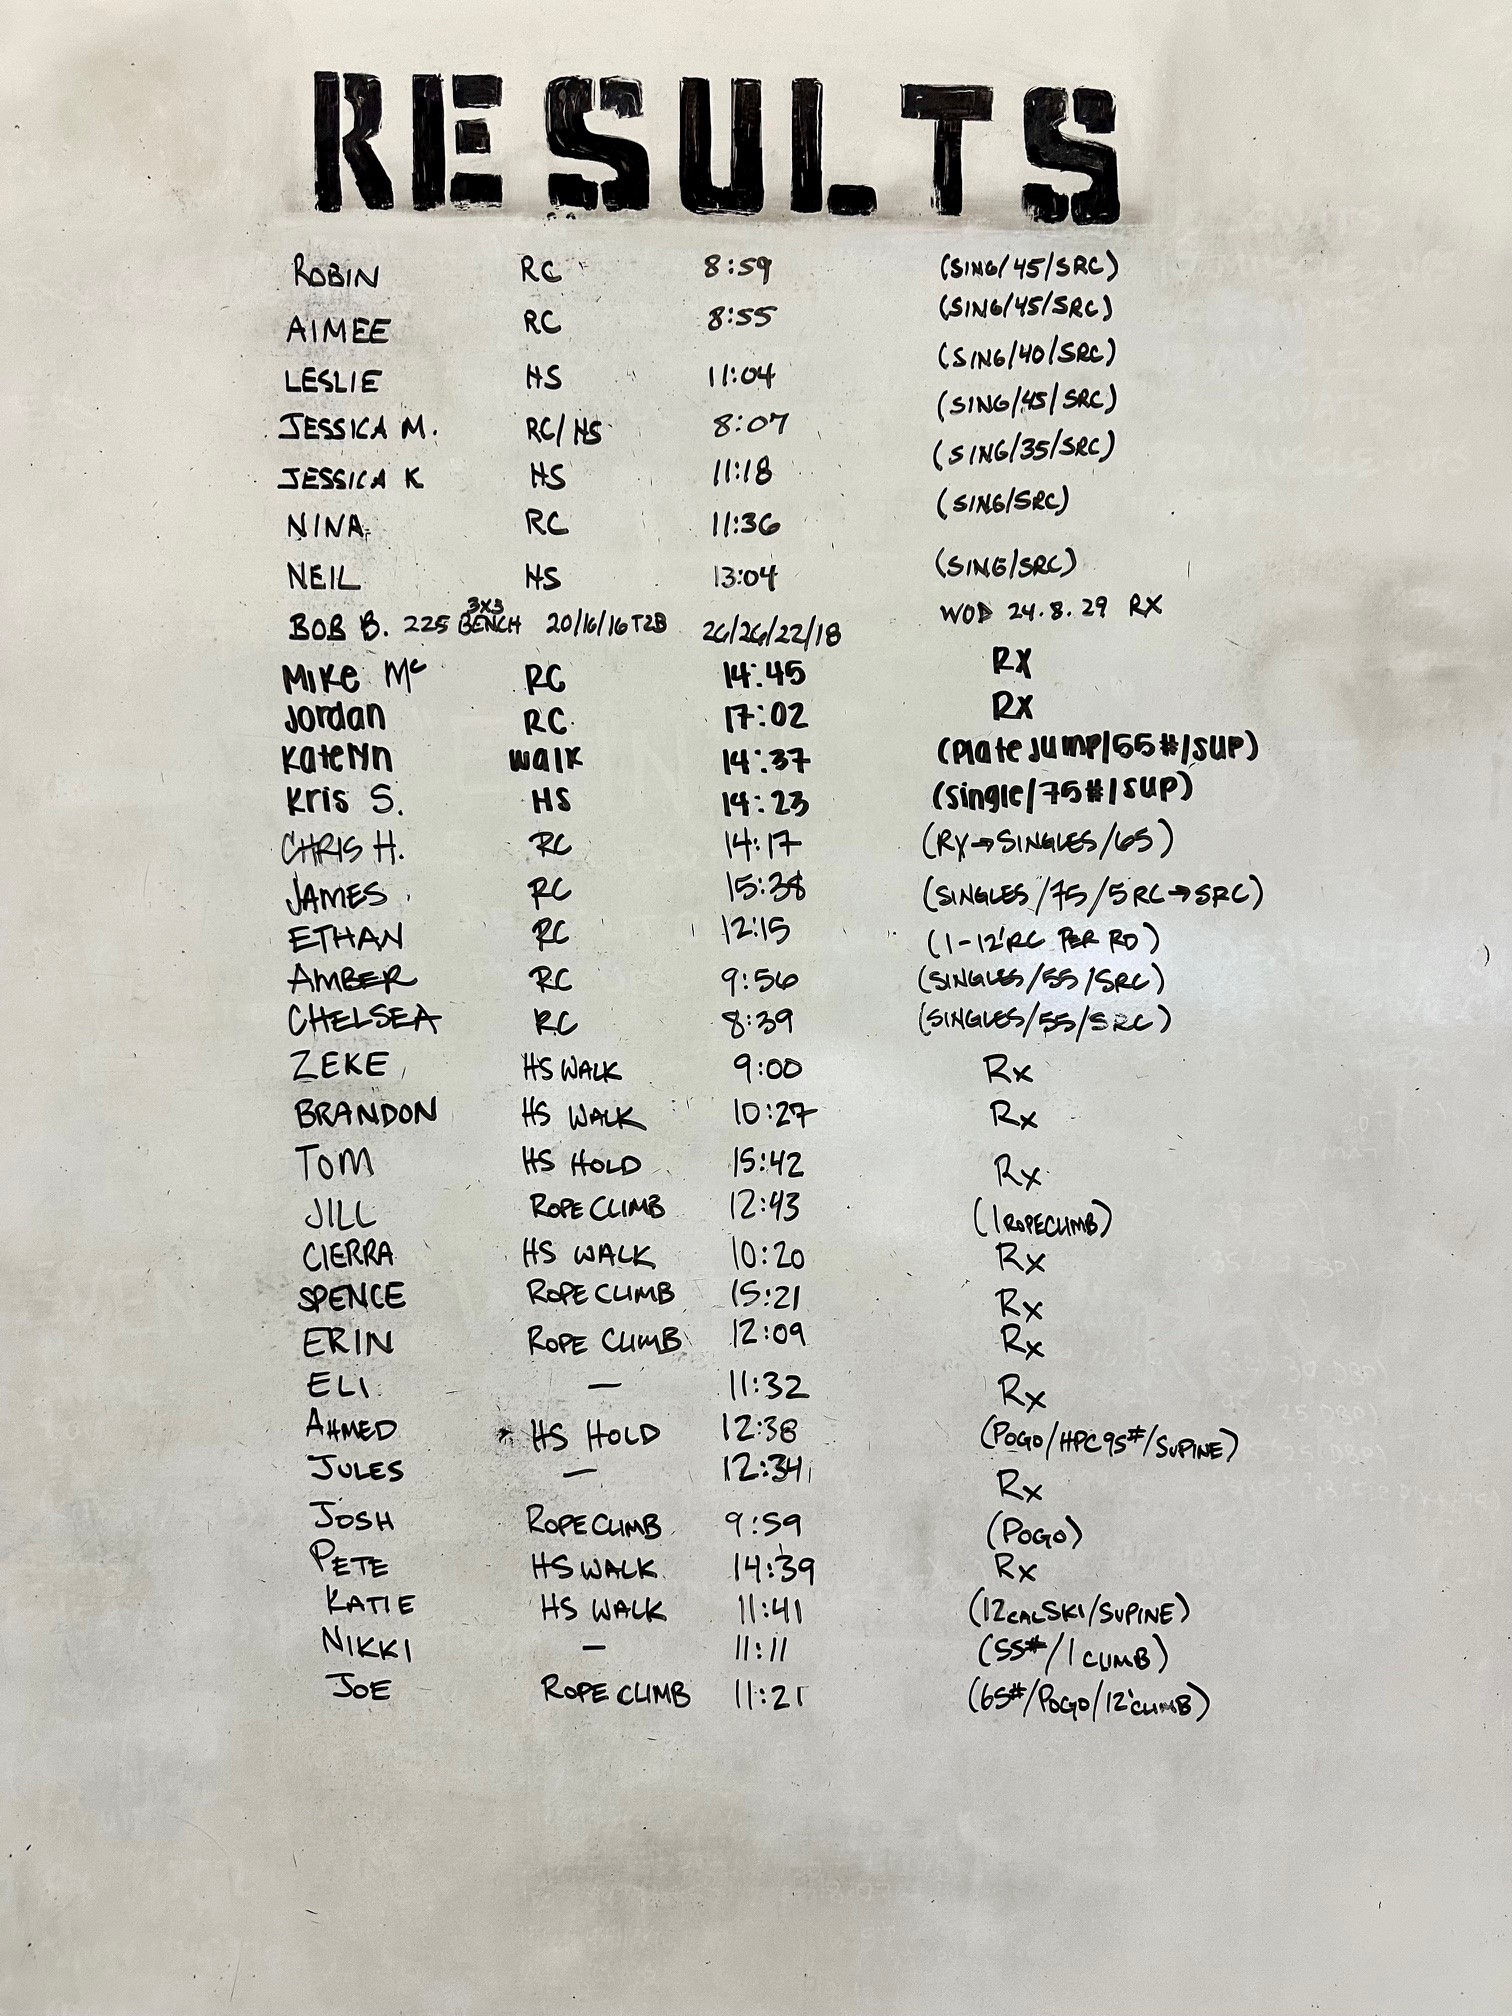 RESULTS
ROBIN RC 8:59 (SING/45/SRC)
AIMEE RC 8:55 (SING/45/SRC)
LESLIE HS 11:04 (SING/40/SRC)
JESSICA M. RC/HS 8:07 (SING/45/SRC)
JESSICA K HS 11:18 (SING/35/SRC)
NINA RC 11:36 (SING/SRC)
NEIL HS 13:04 (SING/SRC)
BOB B. 225 3X3 BENCH 20/16/16 T2B 26/26/22/18 WOD 24.8.29 RX
Mike Mc RC 14:45 RX
Jordan RC 17:02 RX
Katelyn walk 14:37 (Plate Jump/55#/SUP)
Kris S. HS 14:23 (Single/75#/SUP)
CHRIS H. RC 14:17 (RX→SINGLES/65)
JAMES RC 15:38 (SINGLES/75/5RC→SRC)
ETHAN RC 12:15 (1-12'RC PER RD)
AMBER RC 9:56 (SINGLES/55/SRC)
CHELSEA RC 8:39 (SINGLES/55/SRC)
ZEKE HS WALK 9:00 Rx
BRANDON HS WALK 10:27 Rx
TOM HS HOLD 15:42 Rx
JILL ROPE CLIMB 12:43 (1 ROPE CLIMB)
CIERRA HS WALK 10:20 Rx
SPENCE ROPE CLIMB 15:21 Rx
ERIN ROPE CLIMB 12:09 Rx
ELI — 11:32 Rx
AHMED HS HOLD 12:38 (POGO/HPC95#/SUPINE)
JULES — 12:34 Rx
JOSH ROPE CLIMB 9:59 (POGO)
PETE HS WALK 14:39 Rx
KATIE HS WALK 11:41 (12CAL SKI/SUPINE)
NIKKI — 11:11 (55#/1 CLIMB)
JOE ROPE CLIMB 11:21 (65#/POGO/12'CLIMB)